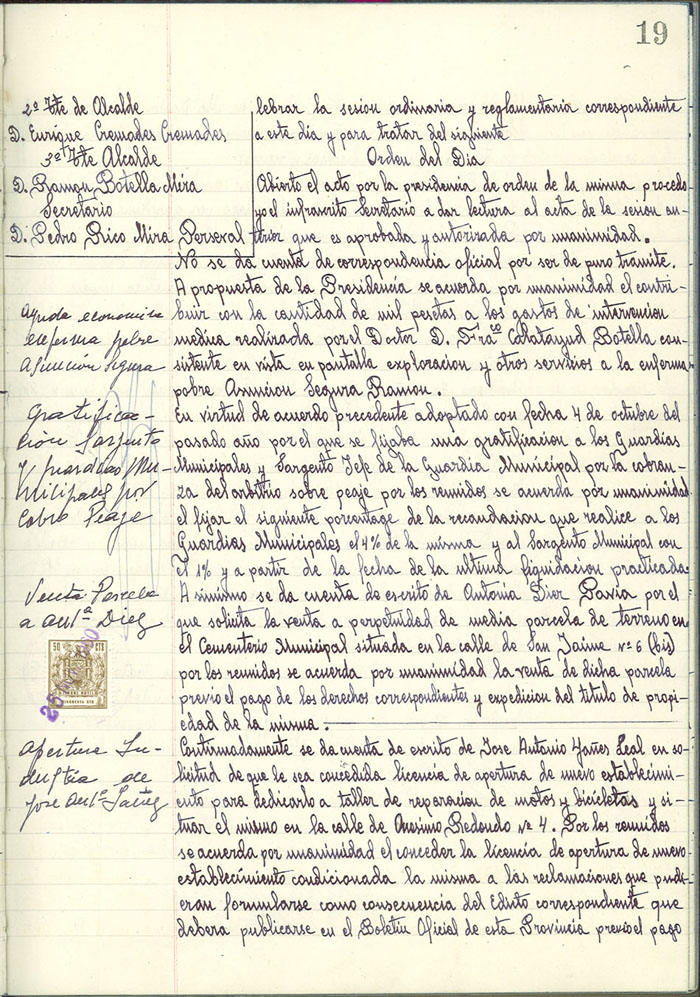 19
2º Tte de Alcalde
D. Enrique Cremades Cremades
3º Tte Alcalde
D. Ramon Botella Mira
Secretario
D. Pedro Rico Mira Perseval
lebrar la sesion ordinaria y reglamentaria correspondiente
a este dia y para tratar del siguiente
Orden del Dia
Abierto el acto por la presidencia de orden de la misma procedo
yo el infrascrito Secretario a dar lectura al acta de la sesion an-
terior que es aprobada y autorizada por unanimidad.
No se da cuenta de correspondencia oficial por ser de puro tramite.
Ayuda economica
enferma pobre
Asuncion Segura
A propuesta de la Presidencia se acuerda por unanimidad el contri-
buir con la cantidad de mil pesetas a los gastos de intervencion
medica realizada por el Doctor D. Fraᶜᵒ Calatayud Botella con-
sistente en vista en pantalla exploracion y otros servicios a la enferma
pobre Asuncion Segura Ramon.
Gratifica-
ción Sargento
y guardias Mu-
nicipales por
Cobro Peaje
En virtud de acuerdo precedente adoptado con fecha 4 de octubre del
pasado año por el que se fijaba una gratificacion a los Guardias
Municipales y Sargento Jefe de la Guardia Municipal por la cobran-
za del arbitrio sobre peaje por los reunidos se acuerda por unanimidad
el fijar el siguiente porcentage de la recaudacion que realice a los
Guardias Municipales el 4% de la misma y al Sargento Municipal con
el 1% y a partir de la fecha de la ultima liquidacion practicada.
Venta Parcela
a Antª Diez
A simismo se da cuenta de escrito de Antonia Diez Pavia por el
que solicita la venta a perpetuidad de media parcela de terreno en
el Cementerio Municipal situada en la calle de San Jaime nº 6 (bis)
por los reunidos se acuerda por unanimidad la venta de dicha parcela
previo el pago de los derechos correspondientes y expedicion del titulo de propi-
edad de la misma.
50 CTS
Apertura In-
dustria de
Jose Antº Yañez
Continuadamente se da cuenta de escrito de Jose Antonio Yañes Leal en so-
licitud de que le sea concedida licencia de apertura de nuevo establecimi-
ento para dedicarlo a taller de reparacion de motos y bicicletas y si-
tuar el mismo en la calle de Onesimo Redondo nº 4. Por los reunidos
se acuerda por unanimidad el conceder la licencia de apertura de nuevo
establecimiento condicionada la misma a las reclamaciones que pudi-
eran formularse como consecuencia del Edicto correspondiente que
debera publicarse en el Boletin Oficial de esta Provincia previo el pago